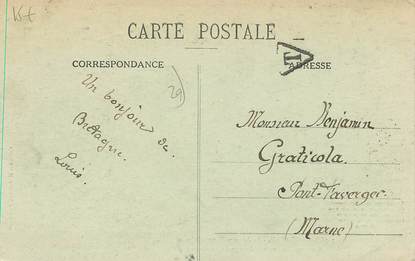 CARTE POSTALE
CORRESPONDANCE
ADRESSE
T
29
Un bonjour de
Bretagne.
Louis.
Monsieur Benjamin
Graticola.
Pont-Faverger.
(Marne)